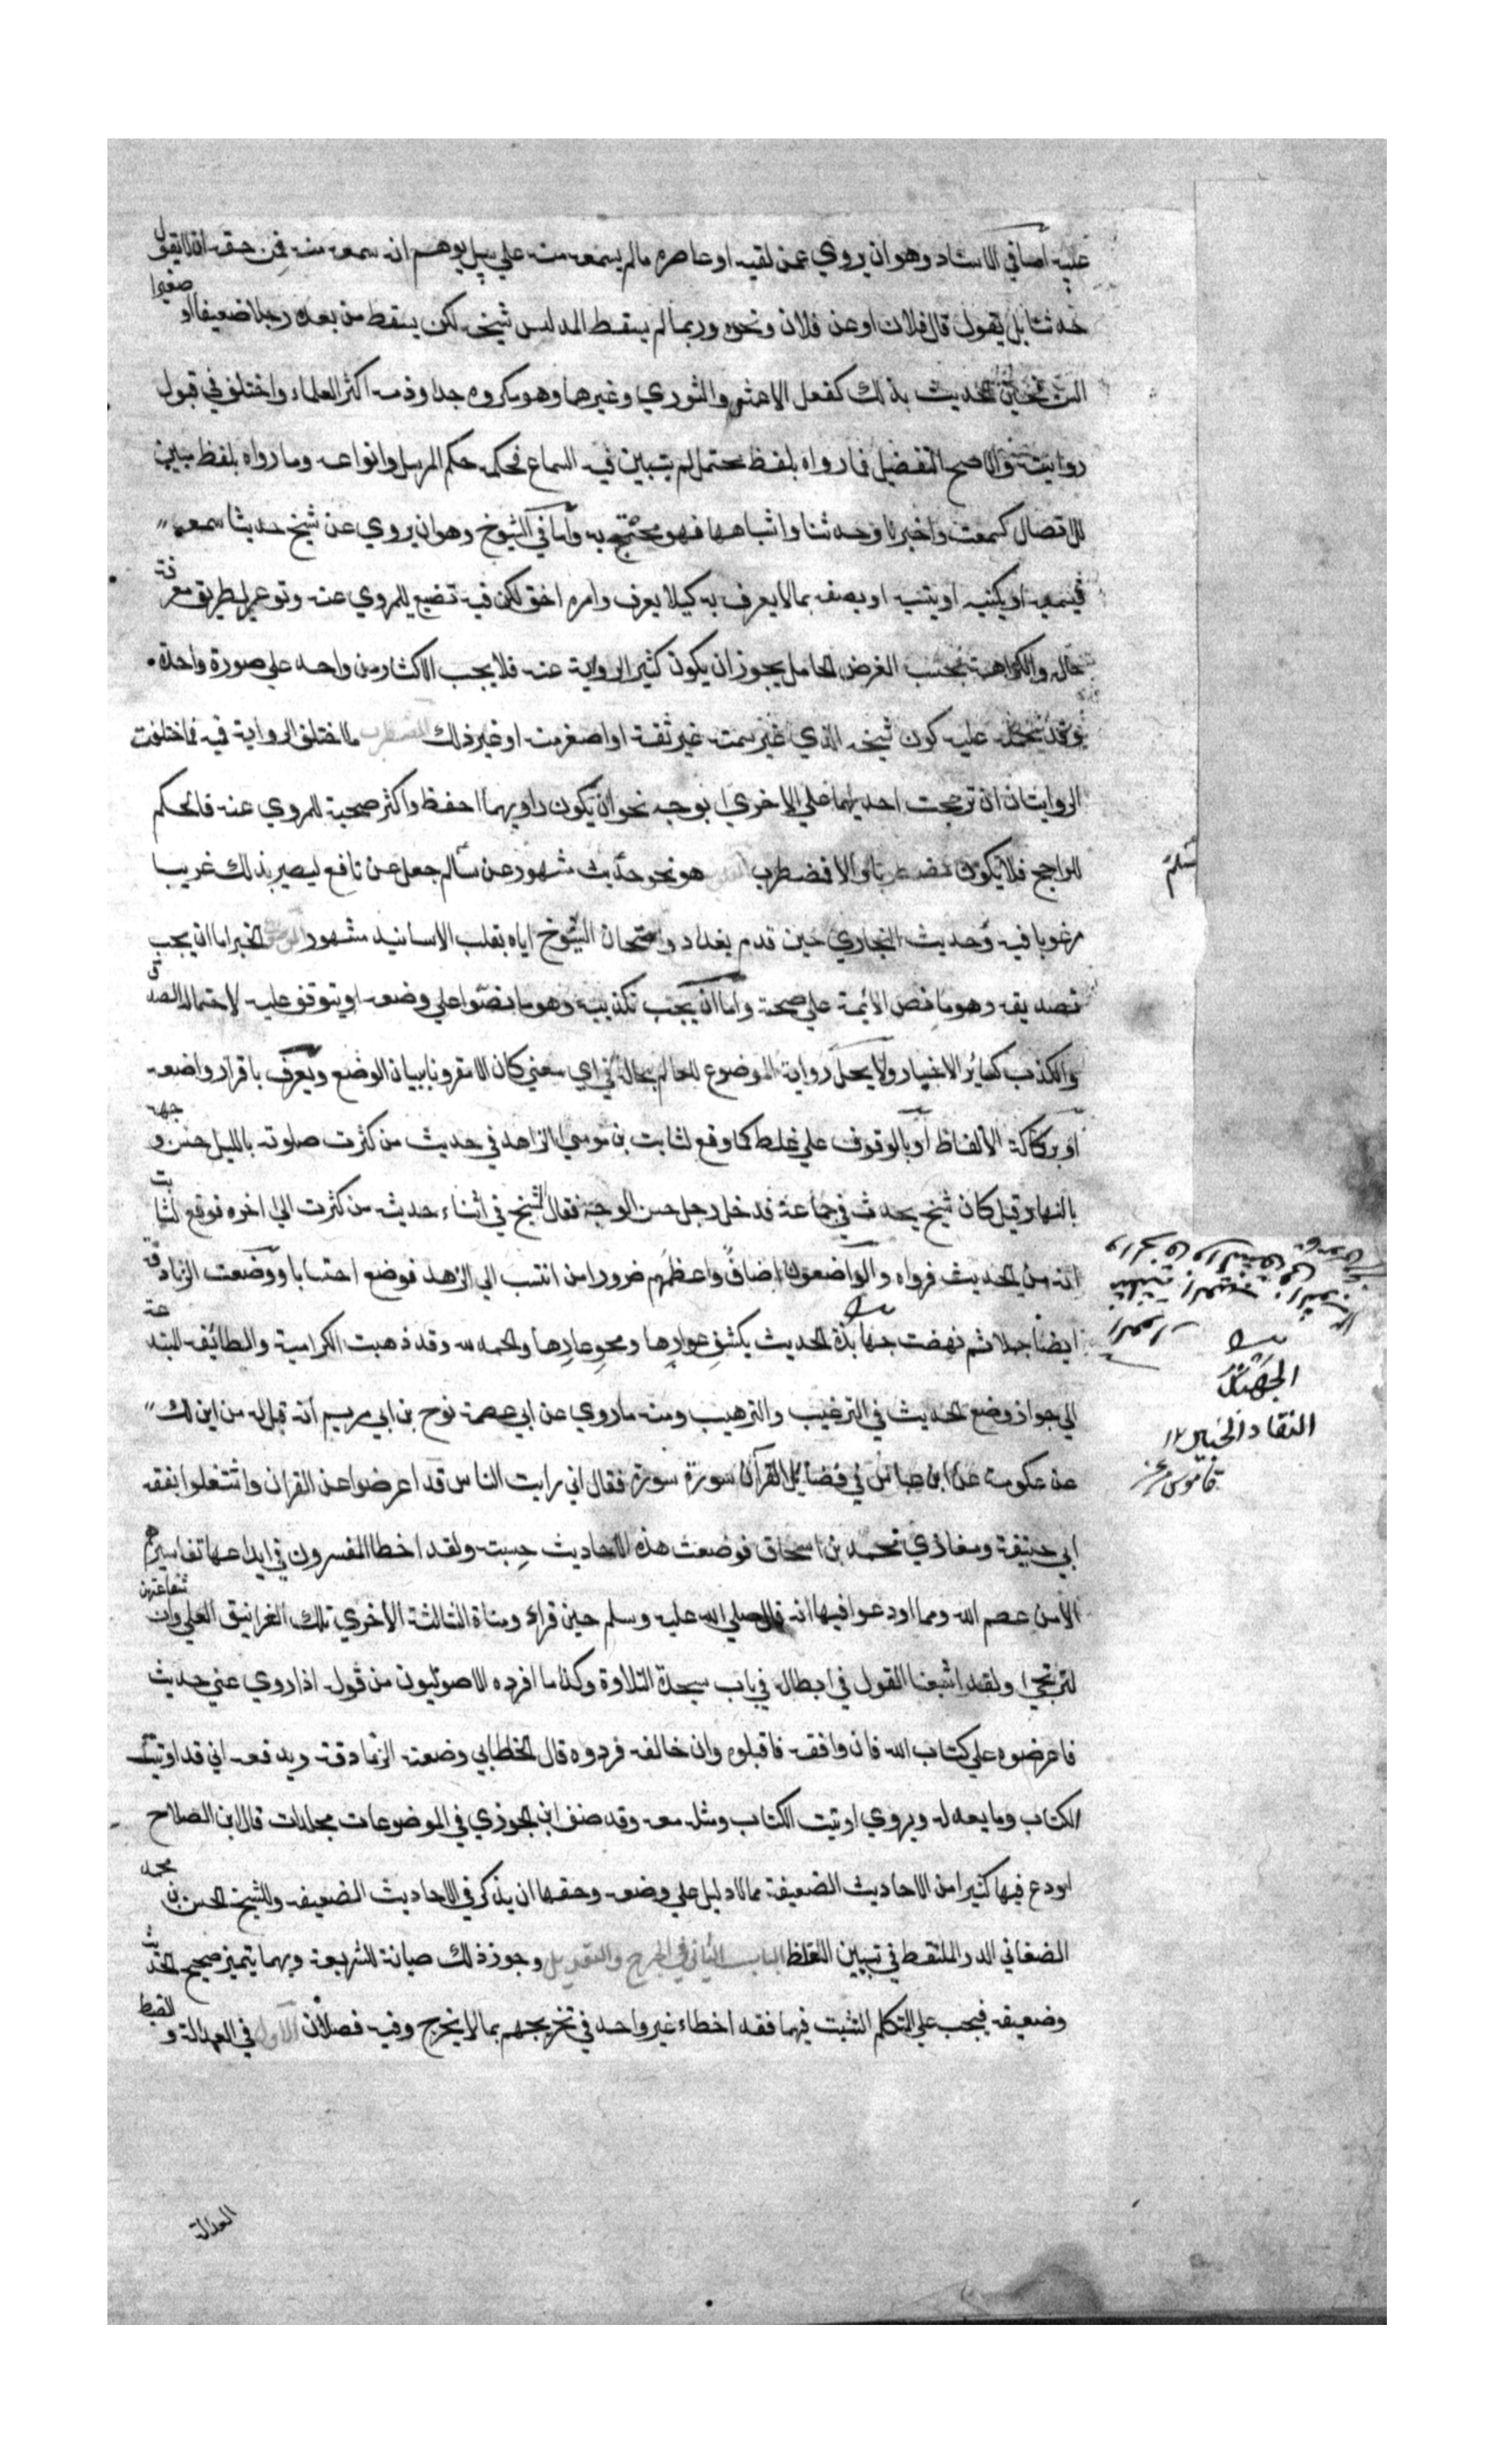 عليه اما في الاسناد وهو ان يروي عمن لقيه او عاصره ما لم يسمعه منه علي سبيل يوهم انه سمعه منه فمن حقه ان لا يقول
حدثنا بل يقول قال فلان او عن فلان ونحوه وربما لم يسقط المدلس شيخه لكن يسقط من بعده رجلا ضعيفا او صغيرا
السن تحسين الحديث بذلك كفعل الاعمش والثوري وغيرهما وهو مكروه جدا وذمه اكثر العلماء واختلف في قبول
روايته والاصح التفصيل فما رواه بلفظ محتمل لم يتبين فيه السماع فحكمه حكم المرسل وانواعه وما رواه بلفظ مبين
للاتصال كسمعت واخبرنا وحدثنا واشباهها فهو محتج به واما في الشيوخ وهو ان يروي عن شيخ حديثا سمعه
فيسميه او يكنيه او ينسبه او يصفه بما لا يعرف به كيلا يعرف وامره اخف لكن فيه تضييع للمروي عنه وتوعير لطريق معرفة
حاله والكراهة بحسب الغرض الحامل يجوز ان يكون كثير الرواية عنه فلا يحب الاكثار من واحد علي صورة واحدة
وقد يحمله عليه كون شيخه الذي غير سمته غير ثقة او اصغر منه او غير ذلك المضطرب ما اختلف الرواية فيه فما اختلفت
الروايتان ان ترجحت احديهما علي الاخري بوجه نحو ان يكون راويهما احفظ واكثر صحبة للمروي عنه فالحكم
للراجح فلا يكون مضطربا والا فمضطرب هو نحو حديث مشهور عن سالم جعل عن نافع ليصير بذلك غريبا
مرغوبا فيه وحديث البخاري حين قدم بغداد وامتحان الشيوخ اياه بقلب الاسانيد مشهور الخبر اما ان يجب
تصديقه وهو ما نص الائمة علي صحته واما ان يجب تكذيبه وهو ما نصوا علي وضعه او يتوقف عليه لاحتماله الصدق
والكذب كسائر الاخبار ولا يحل رواية الموضوع للعالم بحاله في اي معني كان الا مقرونا ببيان الوضع ويعرف باقرار واضعه
او بركاكة الالفاظ او بالوقوف علي غلط كما وقع لثابت بن موسي الزاهد في حديث من كثرت صلوته بالليل حسن وجهه
بالنهار قيل كان شيخ يحدث في جماعة فدخل رجل حسن الوجه فقال الشيخ في اثناء حديثه من كثرت الي اخره فوقع لثابت
انه من الحديث فرواه والواضعون اصناف واعظمهم ضررا من انتسب الي الزهد فوضع احتسابا ووضعت الزنادقة
ايضا جملا ثم نهضت جهابذة الحديث بكشف عوارها ومحو عارها والحمد لله وقد ذهبت الكرامية والطائفة المبتدعة
الي جواز وضع الحديث في الترغيب والترهيب ومنه ما روي عن ابي عصمة نوح بن ابي مريم انه قيل له من اين لك
عن عكرمة عن ابن عباس في فضائل القرآن سورة سورة فقال اني رايت الناس قد اعرضوا عن القران واشتغلوا بفقه
ابي حنيفة ومغازي محمد بن اسحاق فوضعت هذه الاحاديث حسبة ولقد اخطا المفسرون في ايداعها تفاسيرهم
الا من عصم الله ومما اودعوا فيها انه قال صلي الله عليه وسلم حين قراء ومناة الثالثة الاخري تلك الغرانيق العلي وان شفاعتهن
لترتجي ولقد اشبعنا القول في ابطاله في باب سجدة التلاوة وكذا ما افرده الاصوليون من قوله اذا روي عني حديث
فاعرضوه علي كتاب الله فان وافقه فاقبلوه وان خالفه فردوه قال الخطابي وضعته الزنادقة ويدفعه اني قد اوتيت
الكتاب وما يعدله ويروي اوتيت الكتاب ومثله معه وقد صنف ابن الجوزي في الموضوعات مجلدات قال ابن الصلاح
اودع فيها كثيرا من الاحاديث الضعيفة مما لا دليل علي وضعه وحقها ان يذكر في الاحاديث الضعيفة وللشيخ الحسن بن محمد
الصغاني الدر الملتقط في تبيين الغلط الباب الثاني في الجرح والتعديل وجوز ذلك صيانة للشريعة وبهما يتميز صحيح الحديث
وضعيفه فيجب علي المتكلم التثبت فيهما فقد اخطاء غير واحد في تخريجهم بما لا يخرج وفيه فصلان الاول في العدالة والضبط
سالم
الجهبذ
النقاد الخبير ١٢
قاموس
العدالة